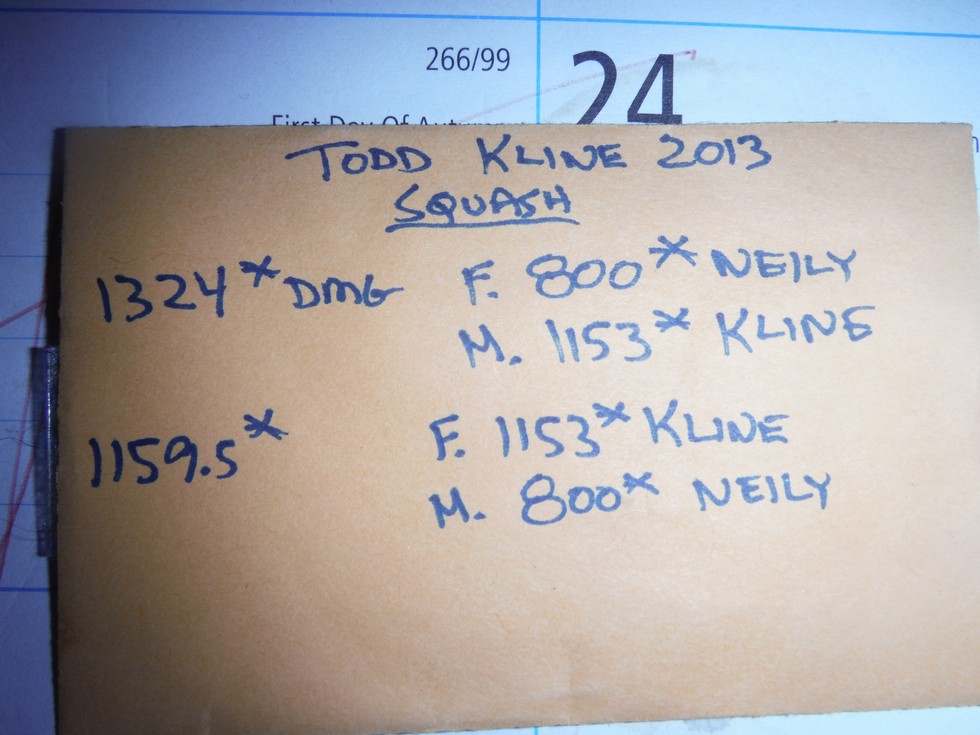 266/99
24
First Day Of Autumn
TODD KLINE 2013
SQUASH
1324* DMG F. 800* NEILY
M. 1153* KLINE
1159.5* F. 1153* KLINE
M. 800* NEILY